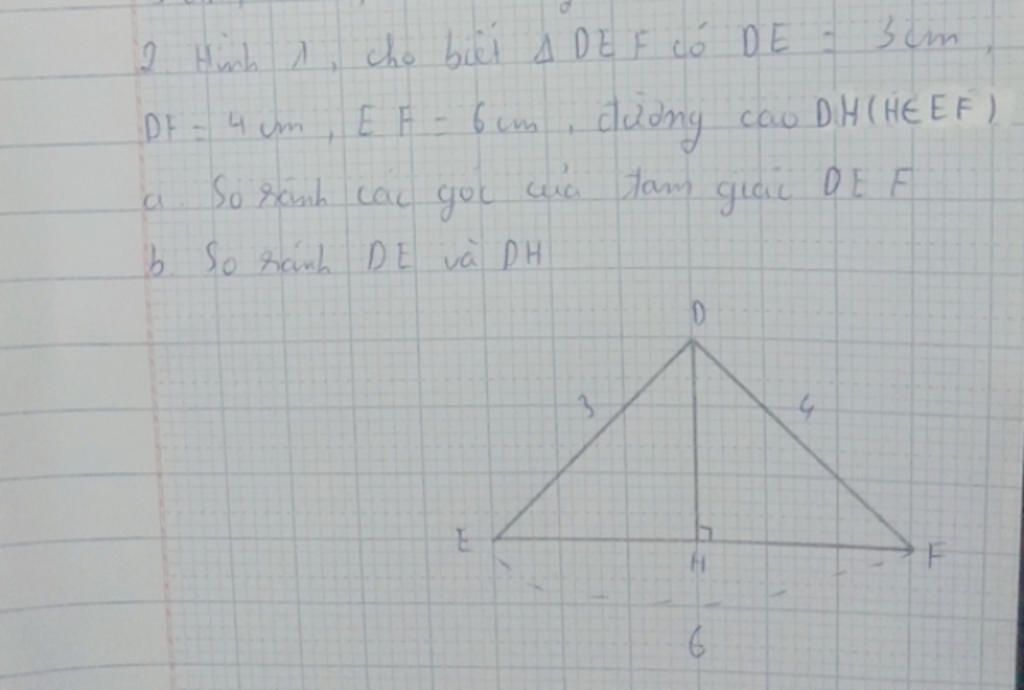 2. Hình 1, cho biết Δ DEF có DE = 3cm,
DF = 4 cm, EF = 6 cm, đường cao DH (H∈EF)
a. So sánh các góc của tam giác DEF
b. So sánh DE và DH
D
3 4
E H F
6